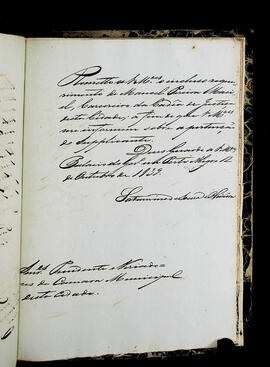 Remetto a V. Mces o incluso reque
rimento de Manoel
Carcereiro da Cadeia de Justiça
desta Cidade, a fim de que V. Mces
me informem sobre a pertenção
do Supplicante.
Deus Guarde a V. Mces
Palacio do Govo em Porto Alegre 12
de Outubro de
Saturnino de Souza e Oliveira
Snres Presidente e Vereado
res da Camara Municipal
desta Cidade.